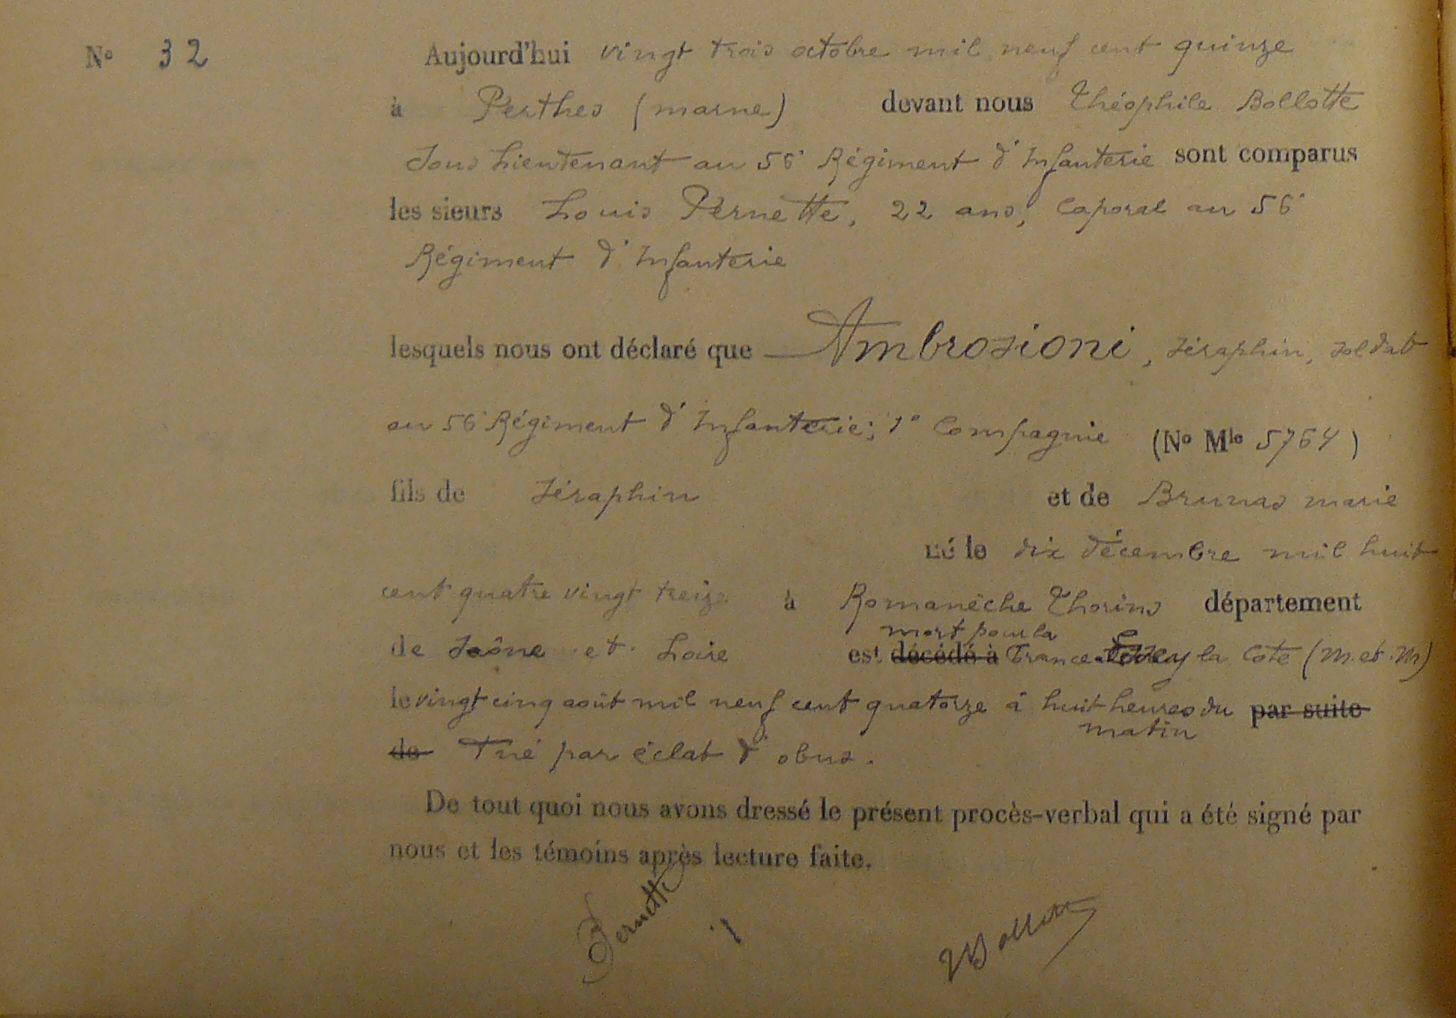 N° 32
Aujourd'hui vingt trois octobre mil neuf cent quinze
à Perthes (marne) devant nous Théophile Bollotte
Sous Lieutenant au 56e Régiment d'Infanterie sont comparus
les sieurs Louis Pernette, 22 ans, Caporal au 56e
Régiment d'Infanterie
lesquels nous ont déclaré que Ambrosioni, Séraphin, soldat
au 56e Régiment d'Infanterie; 1e Compagnie (N° Mle 5764)
fils de Séraphin et de Brunas marie
né le dix décembre mil huit
cent quatre vingt treize à Romanèche Thorins département
mort pour la
de Saône et Loire est décédé à France à la Cote (M. et. M)
le vingt cinq août mil neuf cent quatorze à huit heures du par suite
matin
de Tué par éclat d'obus.
De tout quoi nous avons dressé le présent procès-verbal qui a été signé par
nous et les témoins après lecture faite.
Pernette
TBollotte